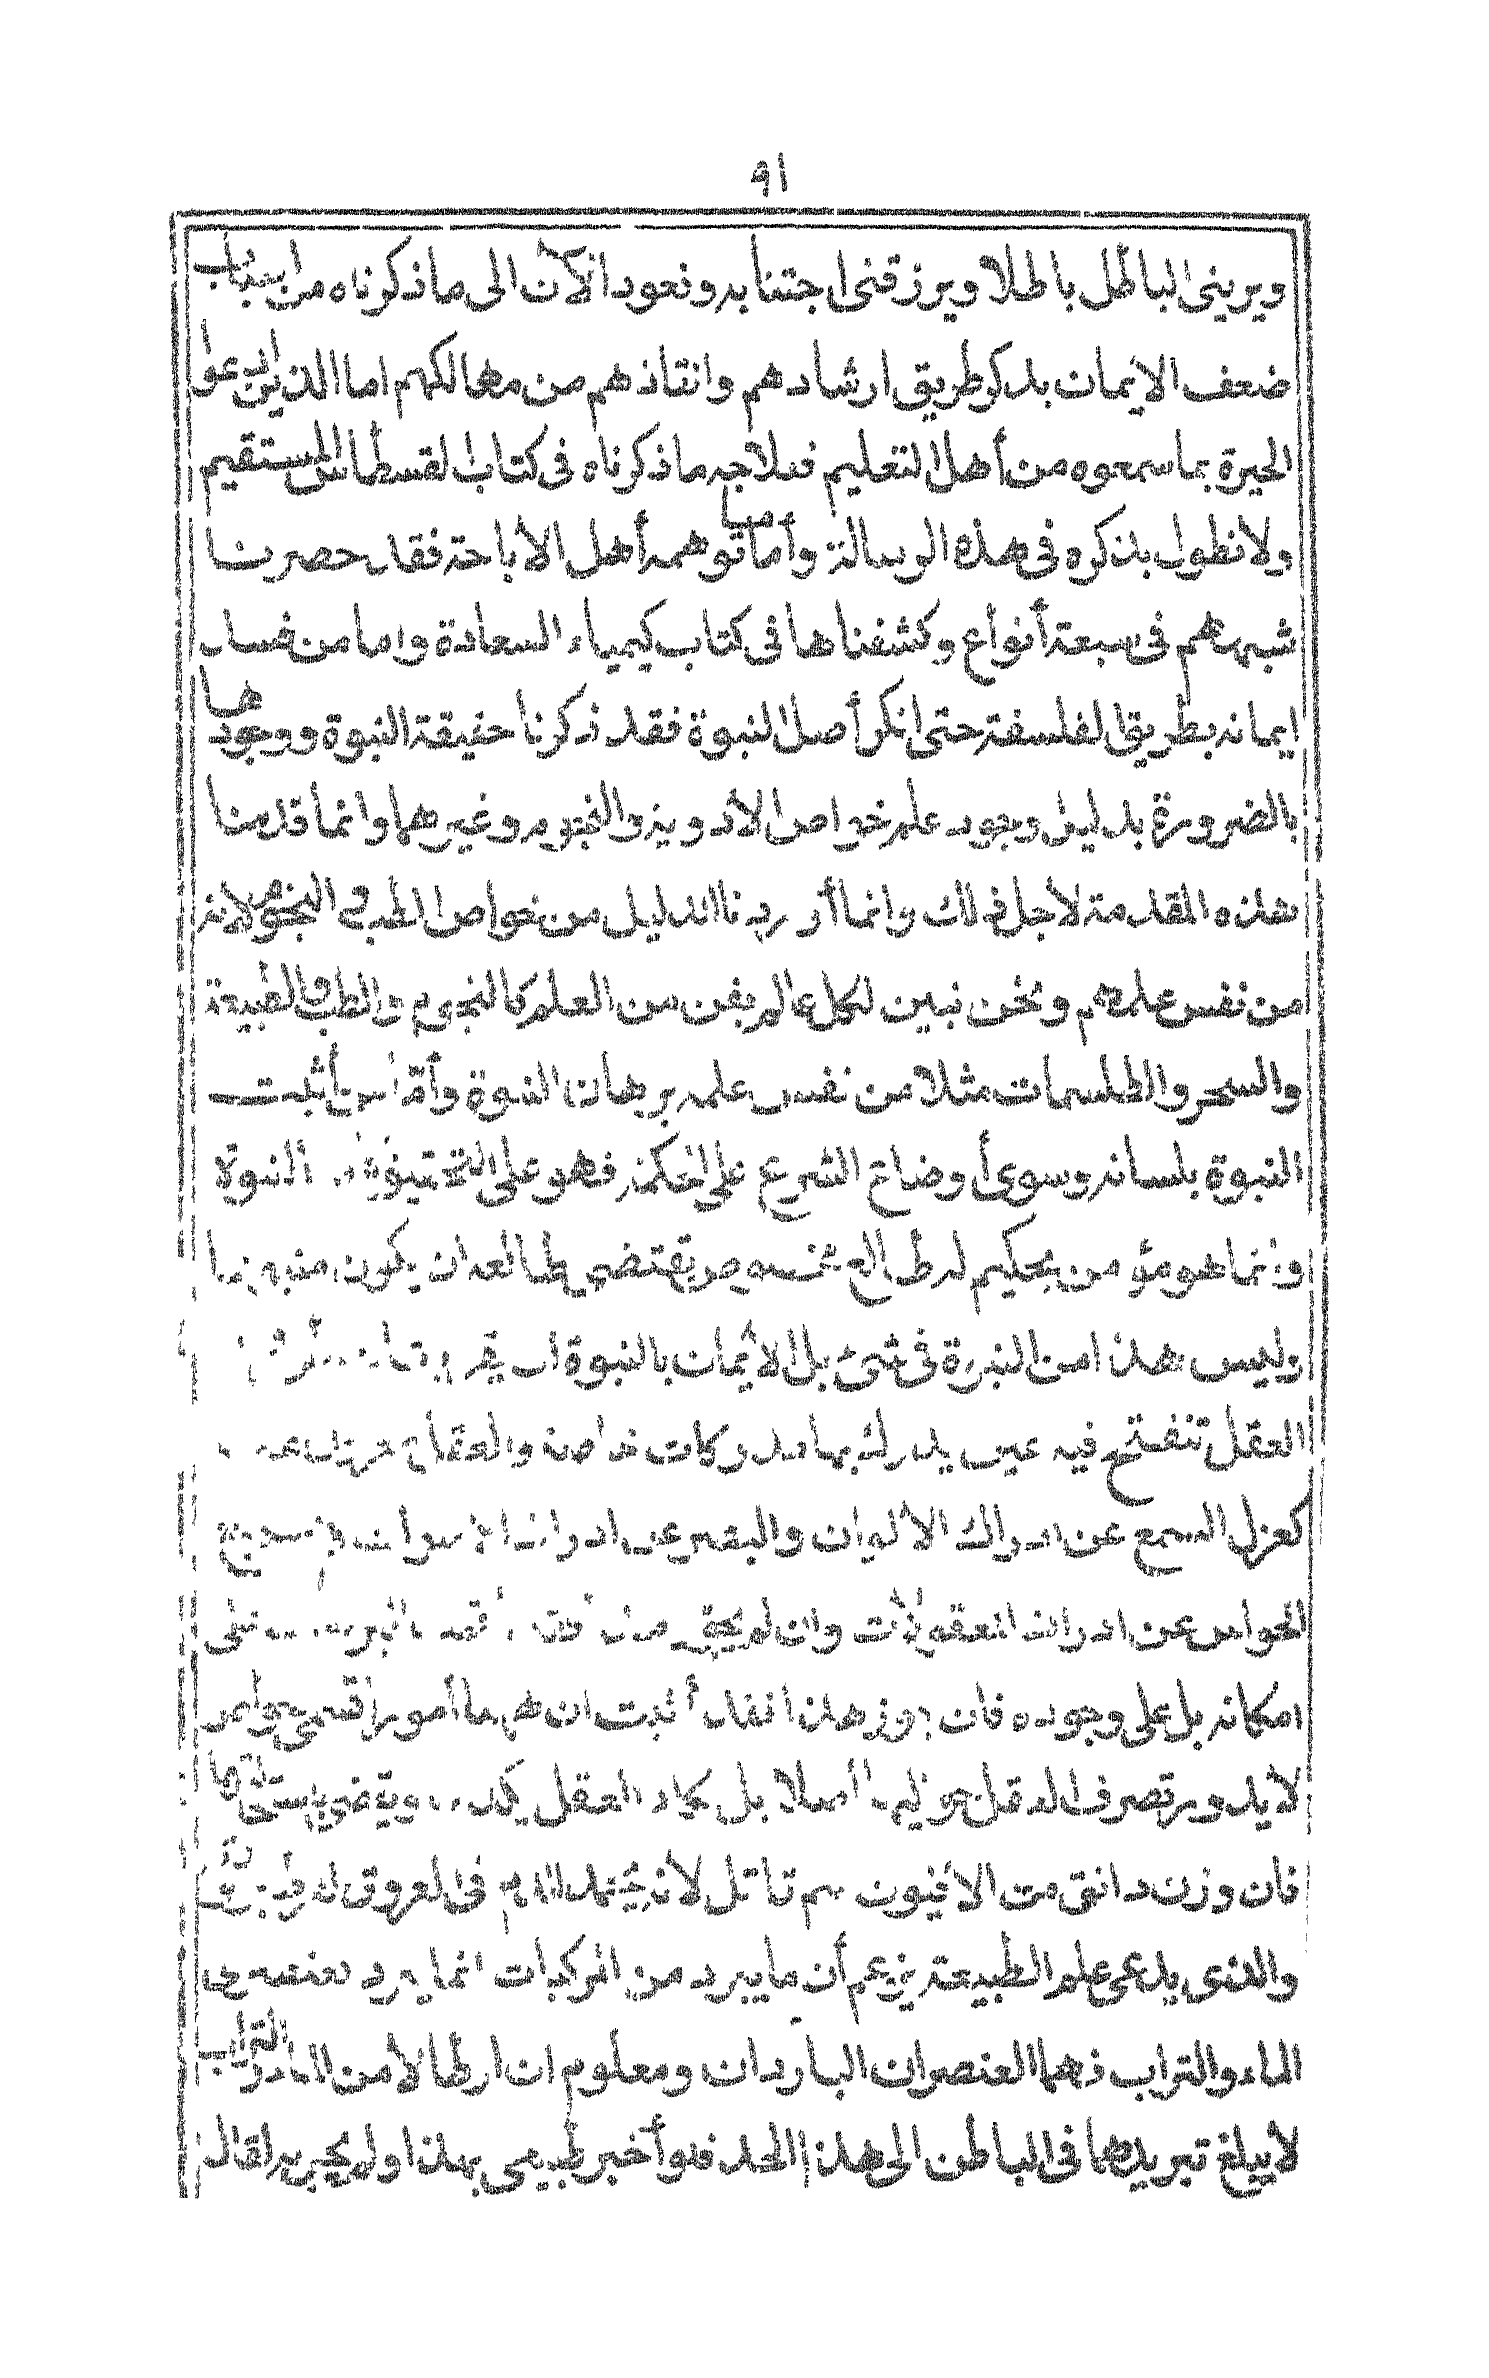 ٩١
ويرينى الباطل باطلا ويرزقنى اجتنابه ونعود الآن الى ماذكرناه من اسباب
ضعف الايمان بذكر طريق ارشادهم وانقاذهم من مهالكهم اما الذين ادعوا
الحيرة بما سمعوه من أهل التعليم فعلاجه ماذكرناه فى كتاب القسطاس المستقيم
ولا نطول بذكره فى هذه الرسالة وأما ما توهمه أهل الاباحة فقد حصرنا
شبههم فى سبعة أنواع وكشفناها فى كتاب كيمياء السعادة واما من فسد
ايمانه بطريق الفلسفة حتى انكر أصل النبوة فقد ذكرنا حقيقة النبوة ووجودها
بالضرورة بدليل وجود علم خواص الادوية والنجوم وغيرهما وانما قدمنا
هذه المقدمة لاجل ذلك وانما أوردنا الدليل من خواص الطب والنجوم لانه
من نفس علمهم ونحن نبين لكل عالم بفن من العلم كالنجوم والطب والطبيعة
والسحر والطلسمات مثلا من نفس علمه برهان النبوة وأما من أثبت
النبوة بلسانه وسوى أوضاع الشرع على الحكمة فهو على التحقيق النبوة
وانما هو مؤمن بحكيم له طالع مخصوص يقتضى طالعه ان يكون متبوعا
وليس هذا من النبوة فى شئ بل الايمان بالنبوة ان يقر
العقل تنفتح فيه عين يدرك بها مدركات خاصة والعقل معزول عنه
كعزل السمع عن ادراك الالوان والبصر عن ادراك الاصوات وجميع
الحواس عن ادراك المعقولات وان لم يجوز هذا فقد على
امكانه بل على وجوده فان جوز هذا فقد أثبت ان ههنا أمورا تسمى خواص
لا يدور تصرف العقل حواليها أصلا بل يكاد العقل يكذبها ويقضى باستحالتها
فان وزن دانق من الافيون سم قاتل لانه يجمد الدم فى العروق لفرط برودته
والذى يدعى علم الطبيعة يزعم أن ما يبرد من المركبات انما يبرد بعنصرى
الماء والتراب فهما العنصران الباردان ومعلوم ان ارطالا من الماء والتراب
لا يبلغ تبريدها فى الباطن الى هذا الحد فلو أخبر طبيعى بهذا ولم يجربه لقال